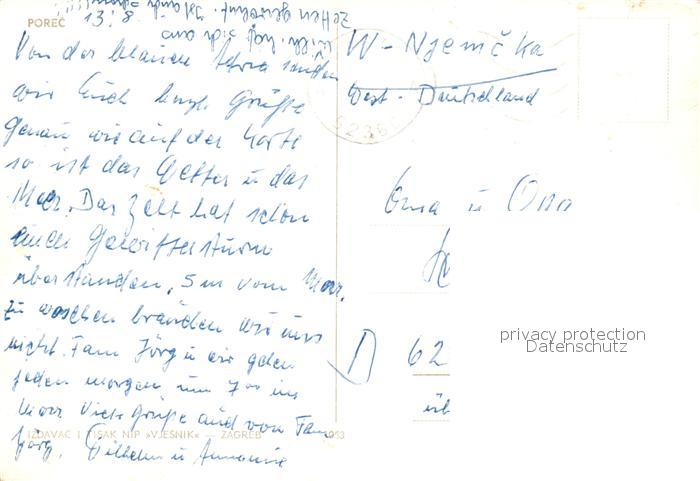 POREČ
13.8
Von der blauen Adria senden
wir Euch herzl. Grüße
Genau wie auf der Karte
so ist das Wetter u das
Meer. Das Zelt hat schon
einen Gewittersturm
überstanden, 5 m vom Meer.
Zu waschen bräuchten wir uns
nicht. Fam Jörg u wir gehen
jeden morgen um 7 00 ins
Meer Viele Grüße auch von Fam
Jörg. Wilhelm u Annemie
Zelten gewöhnt.
W - Njemčka
West - Deutschland
Oma u Opa
D 62
üb
privacy protection
Datenschutz
IZDAVAČ I TISAK NIP »VJESNIK« — ZAGREB